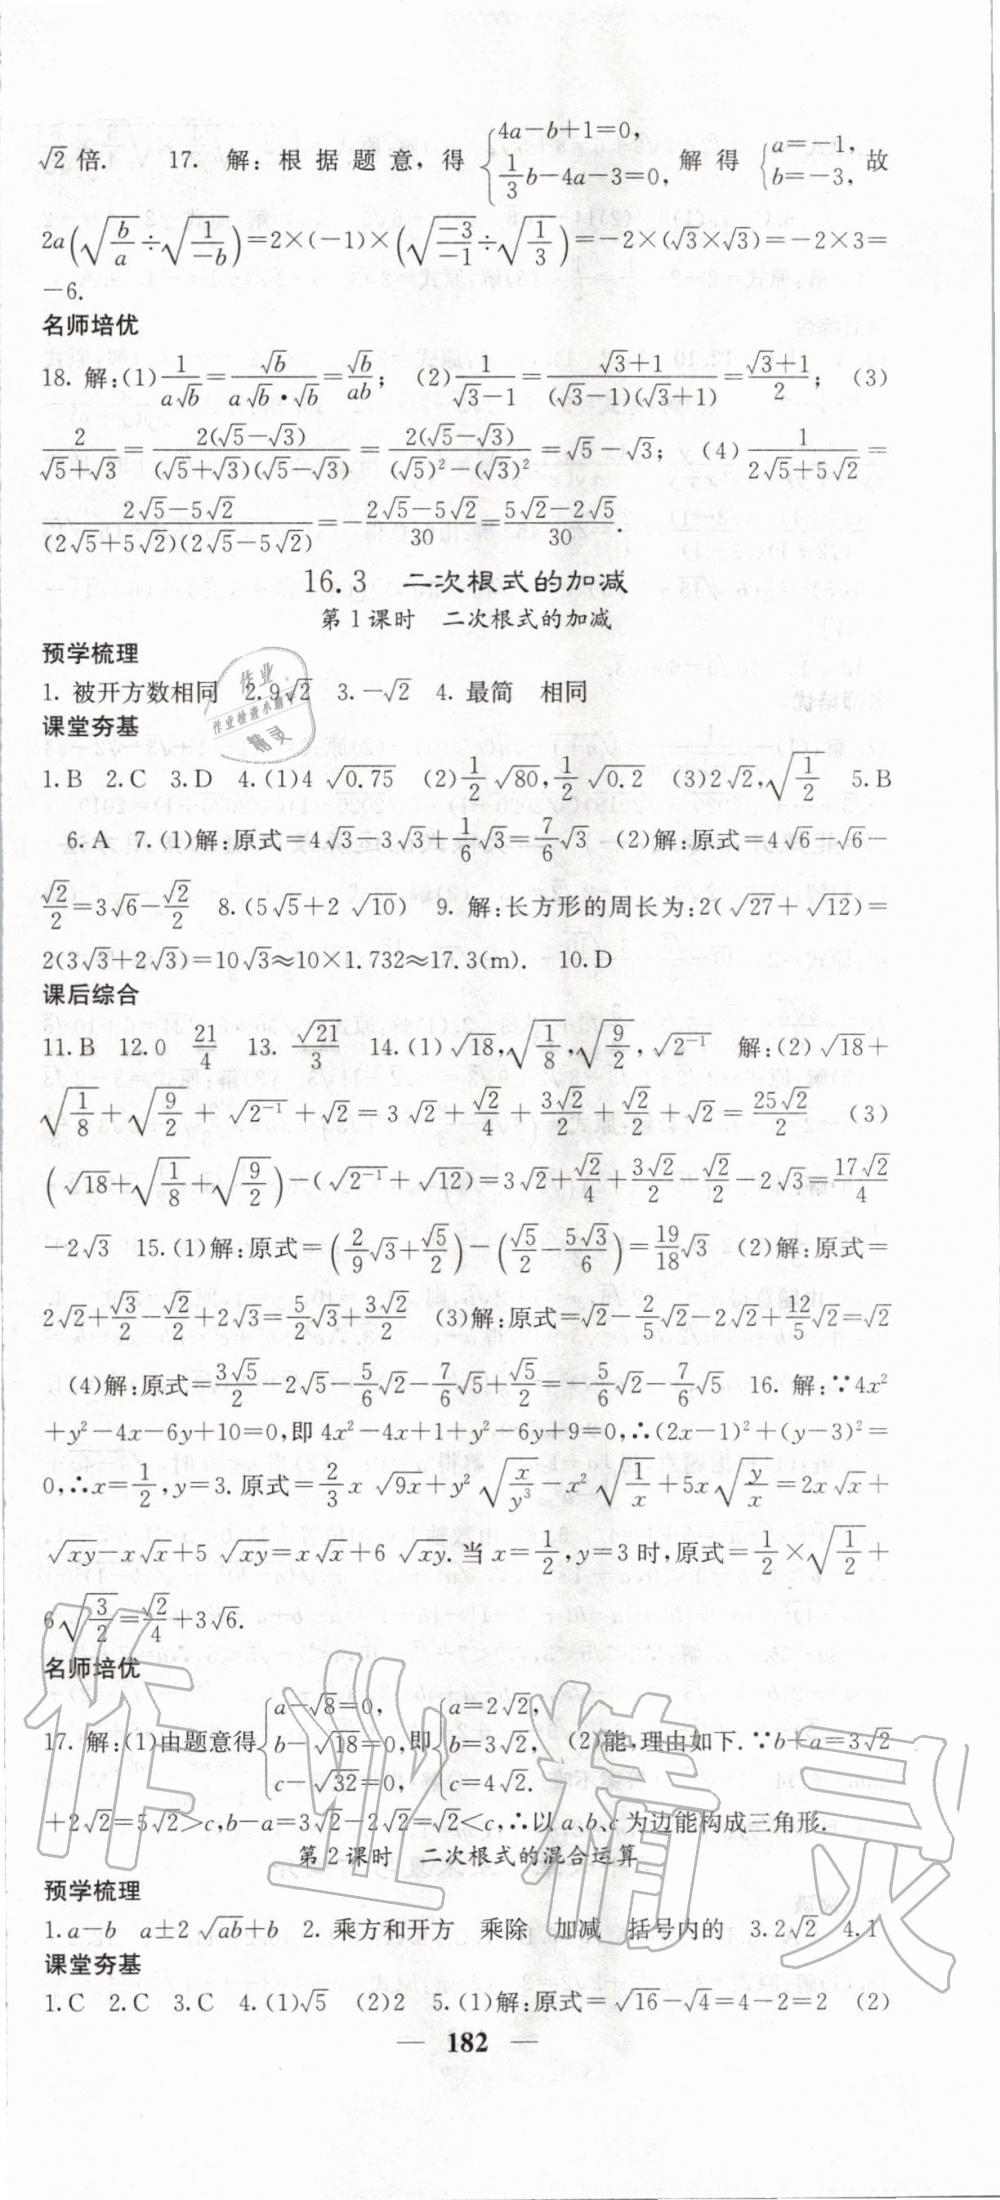 √2倍. 17. 解:根据题意,得{4a-b+1=0, 1/3 b-4a-3=0, 解得{a=-1, b=-3, 故
2a(√(b/a)÷√(1/(-b)))=2×(-1)×(√((-3)/(-1))÷√(1/3))=-2×(√3×√3)=-2×3=
-6.
名师培优
18. 解:(1) 1/(a√b)=√b/(a√b·√b)=√b/(ab); (2) 1/(√3-1)=(√3+1)/((√3-1)(√3+1))=(√3+1)/2; (3)
2/(√5+√3)=2(√5-√3)/((√5+√3)(√5-√3))=2(√5-√3)/((√5)²-(√3)²)=√5-√3; (4) 1/(2√5+5√2)=
(2√5-5√2)/((2√5+5√2)(2√5-5√2))=-(2√5-5√2)/30=(5√2-2√5)/30.
16.3 二次根式的加减
第1课时 二次根式的加减
预学梳理
1. 被开方数相同 2. 9√2 3. -√2 4. 最简 相同
课堂夯基
1. B 2. C 3. D 4. (1)4 √0.75 (2) 1/2 √80, 1/2 √0.2 (3)2√2, √(1/2) 5. B
6. A 7. (1)解:原式=4√3-3√3+1/6 √3=7/6 √3 (2)解:原式=4√6-√6-
√2/2=3√6-√2/2 8. (5√5+2√10) 9. 解:长方形的周长为:2(√27+√12)=
2(3√3+2√3)=10√3≈10×1.732≈17.3(m). 10. D
课后综合
11. B 12. 0 21/4 13. √21/3 14. (1)√18, √(1/8), √(9/2), √(2⁻¹) 解:(2)√18+
√(1/8)+√(9/2)+√(2⁻¹)+√2=3√2+√2/4+3√2/2+√2/2+√2=25√2/2 (3)
(√18+√(1/8)+√(9/2))-(√(2⁻¹)+√12)=3√2+√2/4+3√2/2-√2/2-2√3=17√2/4
-2√3 15. (1)解:原式=(2/9 √3+√5/2)-(√5/2-5√3/6)=19/18 √3 (2)解:原式=
2√2+√3/2-√2/2+2√3=5/2 √3+3√2/2 (3)解:原式=√2-2/5 √2-2√2+12/5 √2=√2
(4)解:原式=3√5/2-2√5-5/6 √2-7/6 √5+√5/2=-5/6 √2-7/6 √5 16. 解:∵4x²
+y²-4x-6y+10=0,即4x²-4x+1+y²-6y+9=0,∴(2x-1)²+(y-3)²=
0,∴x=1/2,y=3. 原式=2/3 x √9x+y² √(x/y³)-x² √(1/x)+5x√(y/x)=2x√x+
√xy-x√x+5√xy=x√x+6√xy. 当x=1/2,y=3时,原式=1/2×√(1/2)+
6√(3/2)=√2/4+3√6.
名师培优
17. 解:(1)由题意得{a-√8=0, b-√18=0, c-√32=0, 即{a=2√2, b=3√2, c=4√2. (2)能,理由如下. ∵b+a=3√2
+2√2=5√2>c,b-a=3√2-2√2=√2<c,∴以a、b、c为边能构成三角形.
第2课时 二次根式的混合运算
预学梳理
1. a-b a±2√ab+b 2. 乘方和开方 乘除 加减 括号内的 3. 2√2 4. 1
课堂夯基
1. C 2. C 3. C 4. (1)√5 (2)2 5. (1)解:原式=√16-√4=4-2=2 (2)
— 182 —
作业精灵
作业
作业检查小精灵
精灵